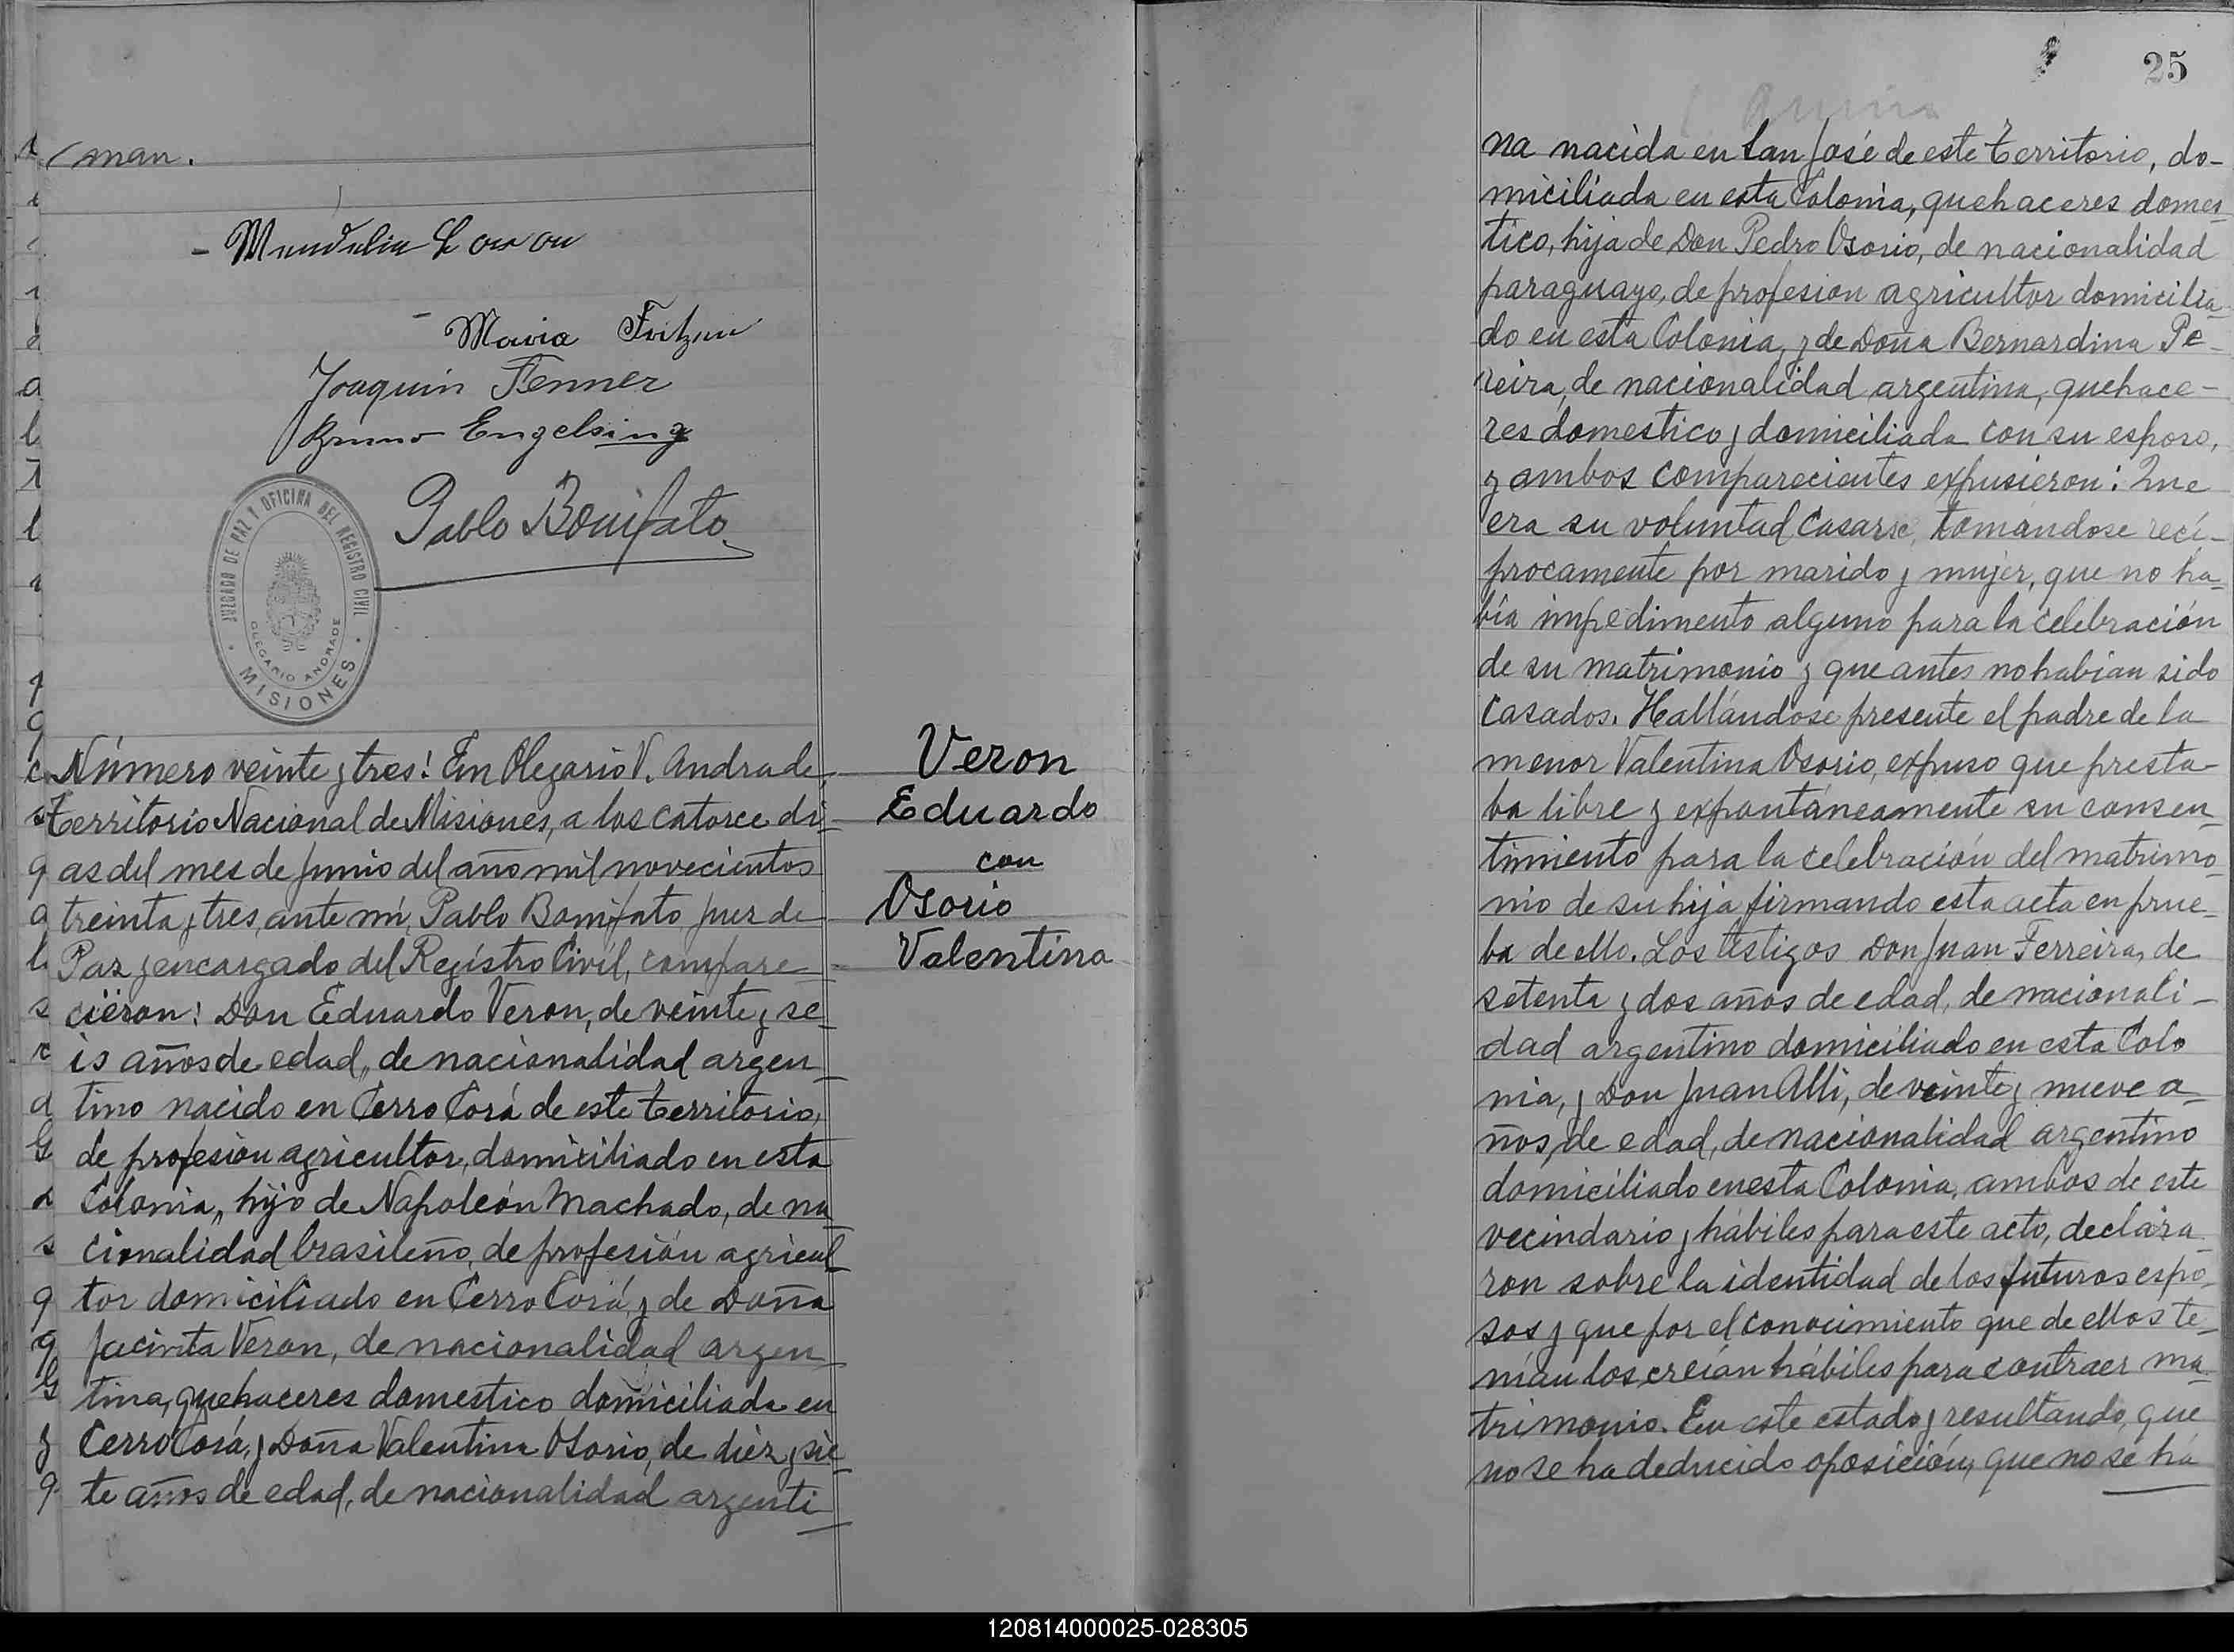 man.
Maria Fritzen
Joaquin Fenner
Bruno Engelsing
Pablo Bonifato
JUZGADO DE PAZ Y OFICINA DEL REGISTRO CIVIL
OLEGARIO ANDRADE
MISIONES
Veron
Eduardo
con
Osorio
Valentina
Número veinte y tres: En Olegario V. Andrade,
Territorio Nacional de Misiones, a los catorce di-
as del mes de Junio del año mil novecientos
treinta y tres, ante mí, Pablo Bonifato Juez de
Paz y encargado del Regístro Civíl, compare-
cieron: Don Eduardo Veron, de veinte y se-
is años de edad, de nacionalidad argen-
tino nacido en Cerro Corá de este territorio,
de profesión agricultor, domiciliado en esta
Colonia, hijo de Napoleón Machado, de na-
cionalidad brasileño, de profesión agricul-
tor domiciliado en Cerro Corá, y de Doña
Jacinta Veron, de nacionalidad argen-
tina, quehaceres domestico domiciliada en
Cerro Corá, y Doña Valentina Osorio, de diez y sie-
te años de edad, de nacionalidad argenti-
25
na nacida en San José de este territorio, do-
miciliada en esta Colonia, quehaceres domes-
tico, hija de Don Pedro Osorio, de nacionalidad
paraguayo, de profesion agricultor domicilia-
do en esta Colonia, y de Doña Bernardina Pe-
reira, de nacionalidad argentina, quehace-
res domestico y domiciliada con su esposo,
y ambos comparecientes expusieron: Que
era su voluntad casarse, tomándose recí-
procamente por marido y mujer, que no ha-
bía impedimento alguno para la celebración
de su matrimonio y que antes no habían sido
casados. Hallándose presente el padre de la
menor Valentina Osorio, expuso que presta-
ba libre y expontáneamente su consen-
timiento para la celebración del matrimo-
nio de su hija firmando esta acta en prue-
ba de ello. Los testigos Don Juan Ferreira, de
setenta y dos años de edad, de nacionali-
dad argentino domiciliado en esta Colo
nia, y Don Juan Alli, de veinte y nueve a-
ños, de edad, de nacionalidad argentino
domiciliado en esta Colonia, ambos de este
vecindario y hábiles para este acto, declara-
ron sobre la identidad de los futuros espo-
sos y que por el conocimiento que de ellos te-
nían los creían hábiles para contraer ma-
trimonio. En este estado y resultando, que
no se ha deducido oposición, que no se há
120814000025-028305